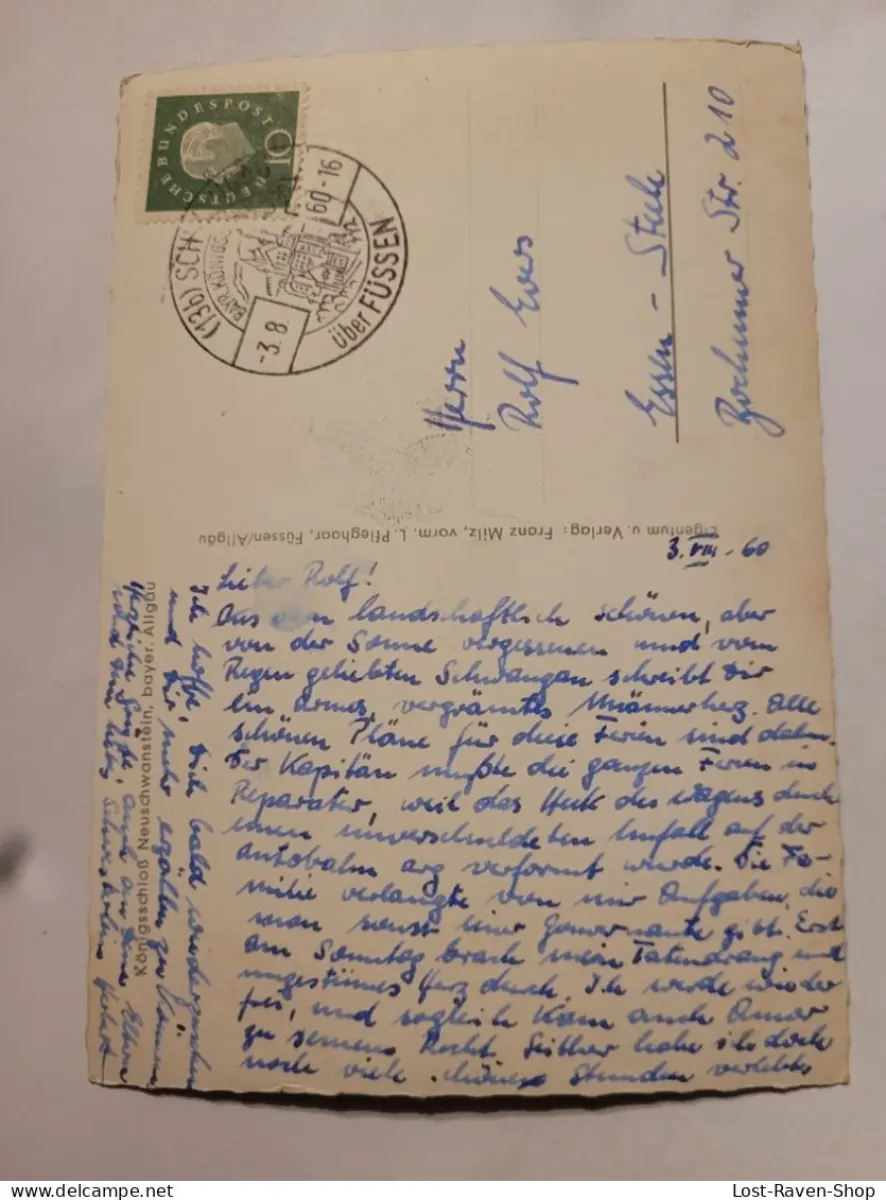 DEUTSCHE BUNDESPOST
10
(13b) SCH
BAYR. KÖNIGSS
60-16
-3.8.
über FÜSSEN
Herrn
Rolf Evers
Essen - Steele
Bochumer Str. 210
Eigentum u. Verlag: Franz Milz, vorm. L. Pfleghaar, Füssen/Allgäu
Königsschloß Neuschwanstein, bayer. Allgäu
3. VIII. - 60
Lieber Rolf!
Aus dem landschaftlich schönen, aber
von der Sonne vergessenen und vom
Regen geliebten Schwangau schreibt Dir
ein armes, vergrämtes Männerherz. Alle
schönen Pläne für diese Ferien sind dahin.
Der Kapitän mußte die ganzen Ferien in
Reparatur, weil das Heck des Wagens durch
einen unverschuldeten Unfall auf der
Autobahn arg verformt wurde. Die Fa-
milie verlangte von mir Aufgaben, die
man sonst einer Gouvernante gibt. Erst
am Sonntag brach mein Tatendrang und
ungestümes Herz durch. Ich werde wieder
frei, und sogleich kam auch Amor
zu seinem Recht. Seither habe ich doch
noch viele schöne Stunden verlebt.
Ich hoffe, Dich bald wiederzusehen
und Dir mehr erzählen zu können.
Herzliche Grüße, auch an Deine Eltern
und Dein liebes Schwesterlein
Lost-Raven-Shop